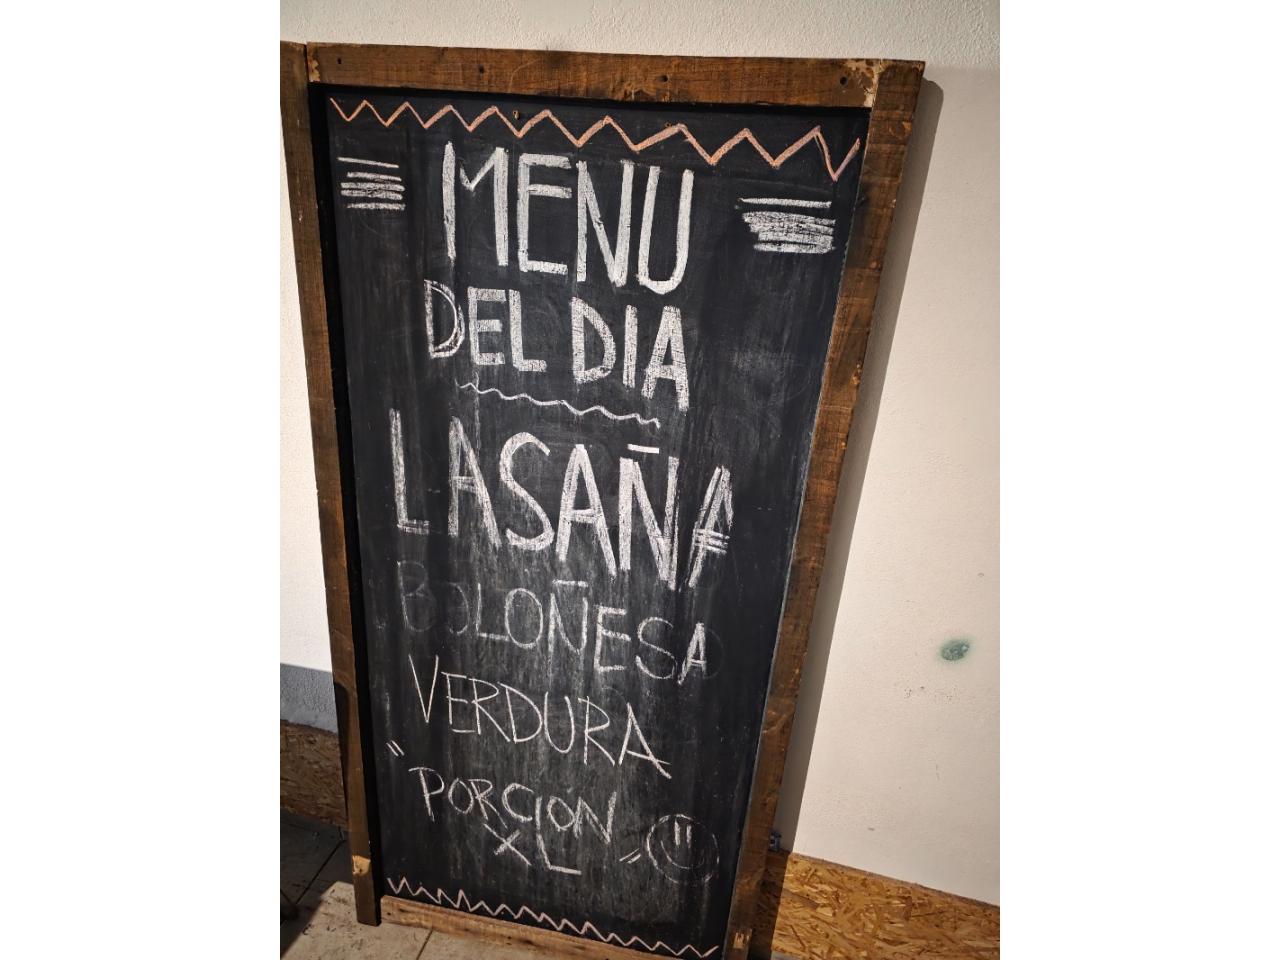 MENU
DEL DIA
LASAÑA
BOLOÑESA
VERDURA
PORCION
XL